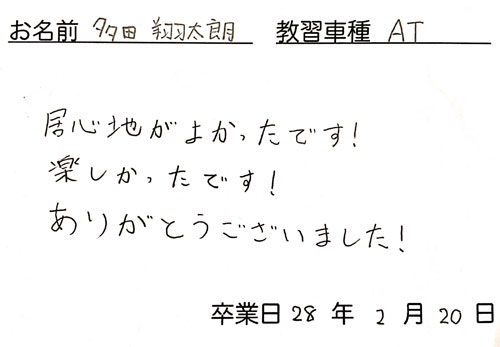 お名前 多田 翔太朗 教習車種 AT
居心地がよかったです!
楽しかったです!
ありがとうございました!
卒業日28年2月20日